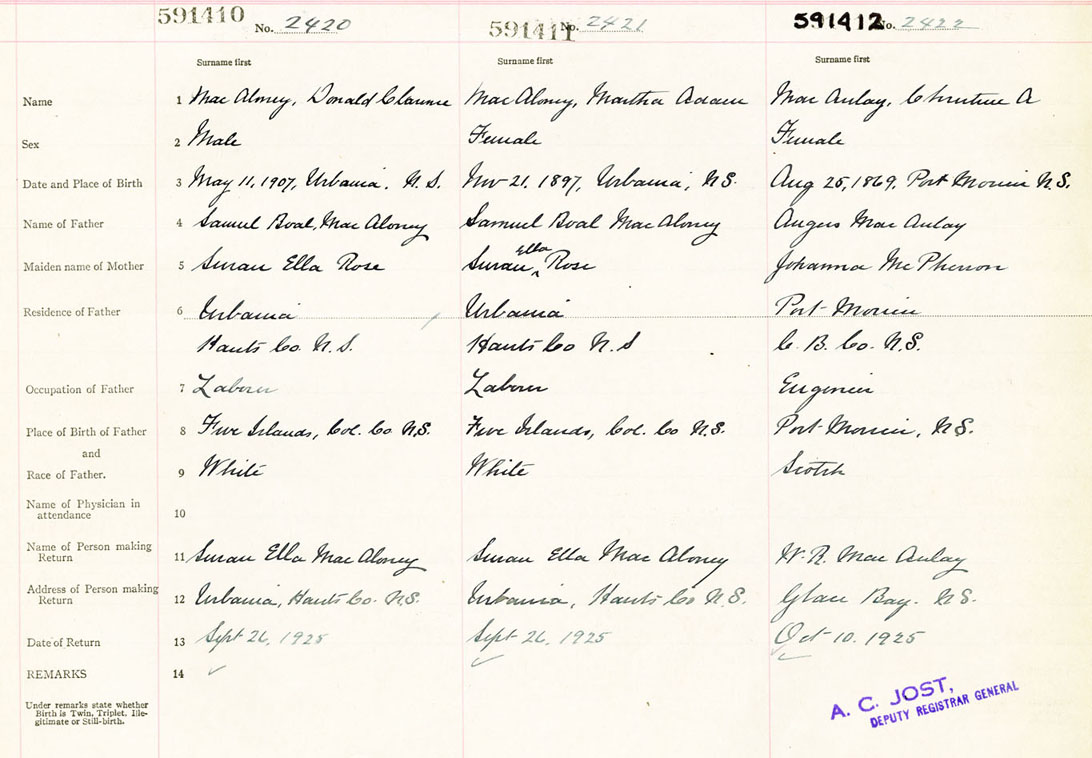 591410 No. 2420 591411 No. 2421 591412 No. 2422
Surname first Surname first Surname first
Name 1 Mac Aloney, Donald Clarence Mac Aloney, Martha Adam Mac Aulay, Christine A
Sex 2 Male Female Female
Date and Place of Birth 3 May 11, 1907, Urbania, N.S. Nov 21, 1897, Urbania, N.S. Aug 25, 1869, Port Morien N.S.
Name of Father 4 Samuel Boal, Mac Aloney Samuel Boal Mac Aloney Angus Mac Aulay
Maiden name of Mother 5 Susan Ella Rose Susan Ella Rose Johanna McPherson
Residence of Father 6 Urbania Urbania Port Morien
Hants Co. N.S. Hants Co N.S C. B. Co. N.S.
Occupation of Father 7 Laborer Laborer Engineer
Place of Birth of Father 8 Five Islands, Col. Co N.S. Five Islands, Col. Co N.S. Port Morien, N.S.
and
Race of Father. 9 White White Scotch
Name of Physician in
attendance 10
Name of Person making
Return 11 Susan Ella Mac Aloney Susan Ella Mac Aloney Mac Aulay
Address of Person making
Return 12 Urbania, Hants Co. N.S. Urbania, Hants Co N.S. Glace Bay. N.S.
Date of Return 13 Sept 26, 1925 Sept 26, 1925 Oct 10. 1925
REMARKS 14
Under remarks state whether
Birth is Twin, Triplet. Ille-
gitimate or Still-birth.
A. C. JOST,
DEPUTY REGISTRAR GENERAL